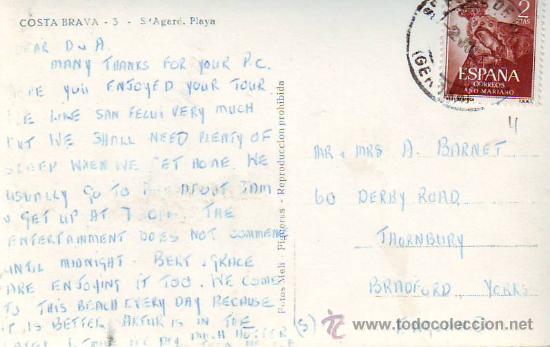 COSTA BRAVA - 3 - S'Agaró. Playa
DEAR D & A.
MANY THANKS FOR YOUR P.C.
HOPE YOU ENJOYED YOUR TOUR
WE LIKE SAN FELIU VERY MUCH
BUT WE SHALL NEED PLENTY OF
SLEEP WHEN WE GET HOME. WE
USUALLY GO TO BED ABOUT 3AM
& GET UP AT THE
ENTERTAINMENT DOES NOT COMMENCE
UNTIL MIDNIGHT. BERT & GRACE
ARE ENJOYING IT TOO. WE COME
TO THIS BEACH EVERY DAY BECAUSE
IT IS BETTER. ARTHUR IS IN THE
Fotos Meli - Figueras - Reproducción prohibida
2
PTAS
ESPAÑA
CORREOS
AÑO MARIANO
4
MR & MRS A. BARNET
60 DERBY ROAD
THORNBURY
BRADFORD YORKS
(S)
tc
todocoleccion.net